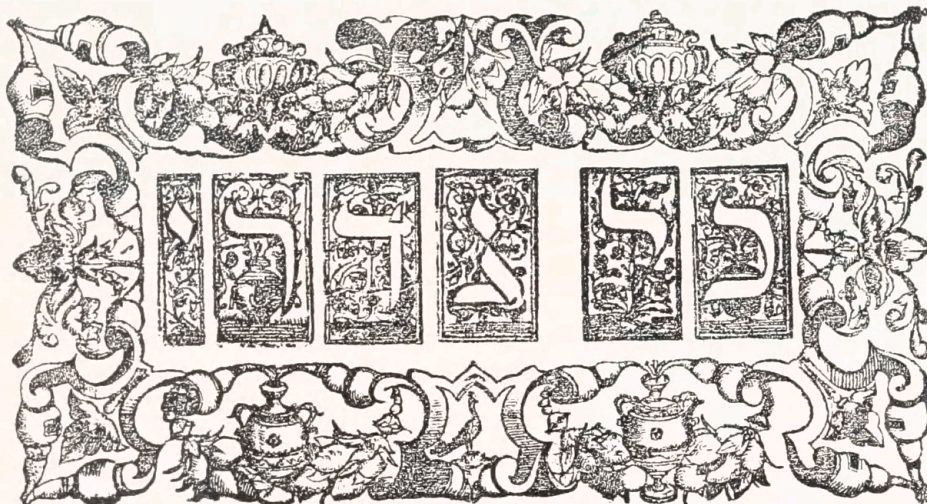 כל נדרי